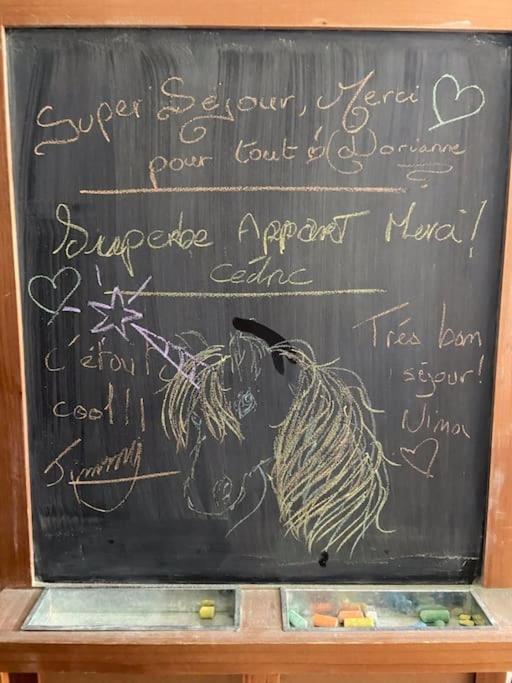 Super Séjour, Merci
pour tout Dorianne
Superbe Appart Merci!
Cédric
c'étoit
cool!!!
Jimmy
Très bon
séjour!
Nima